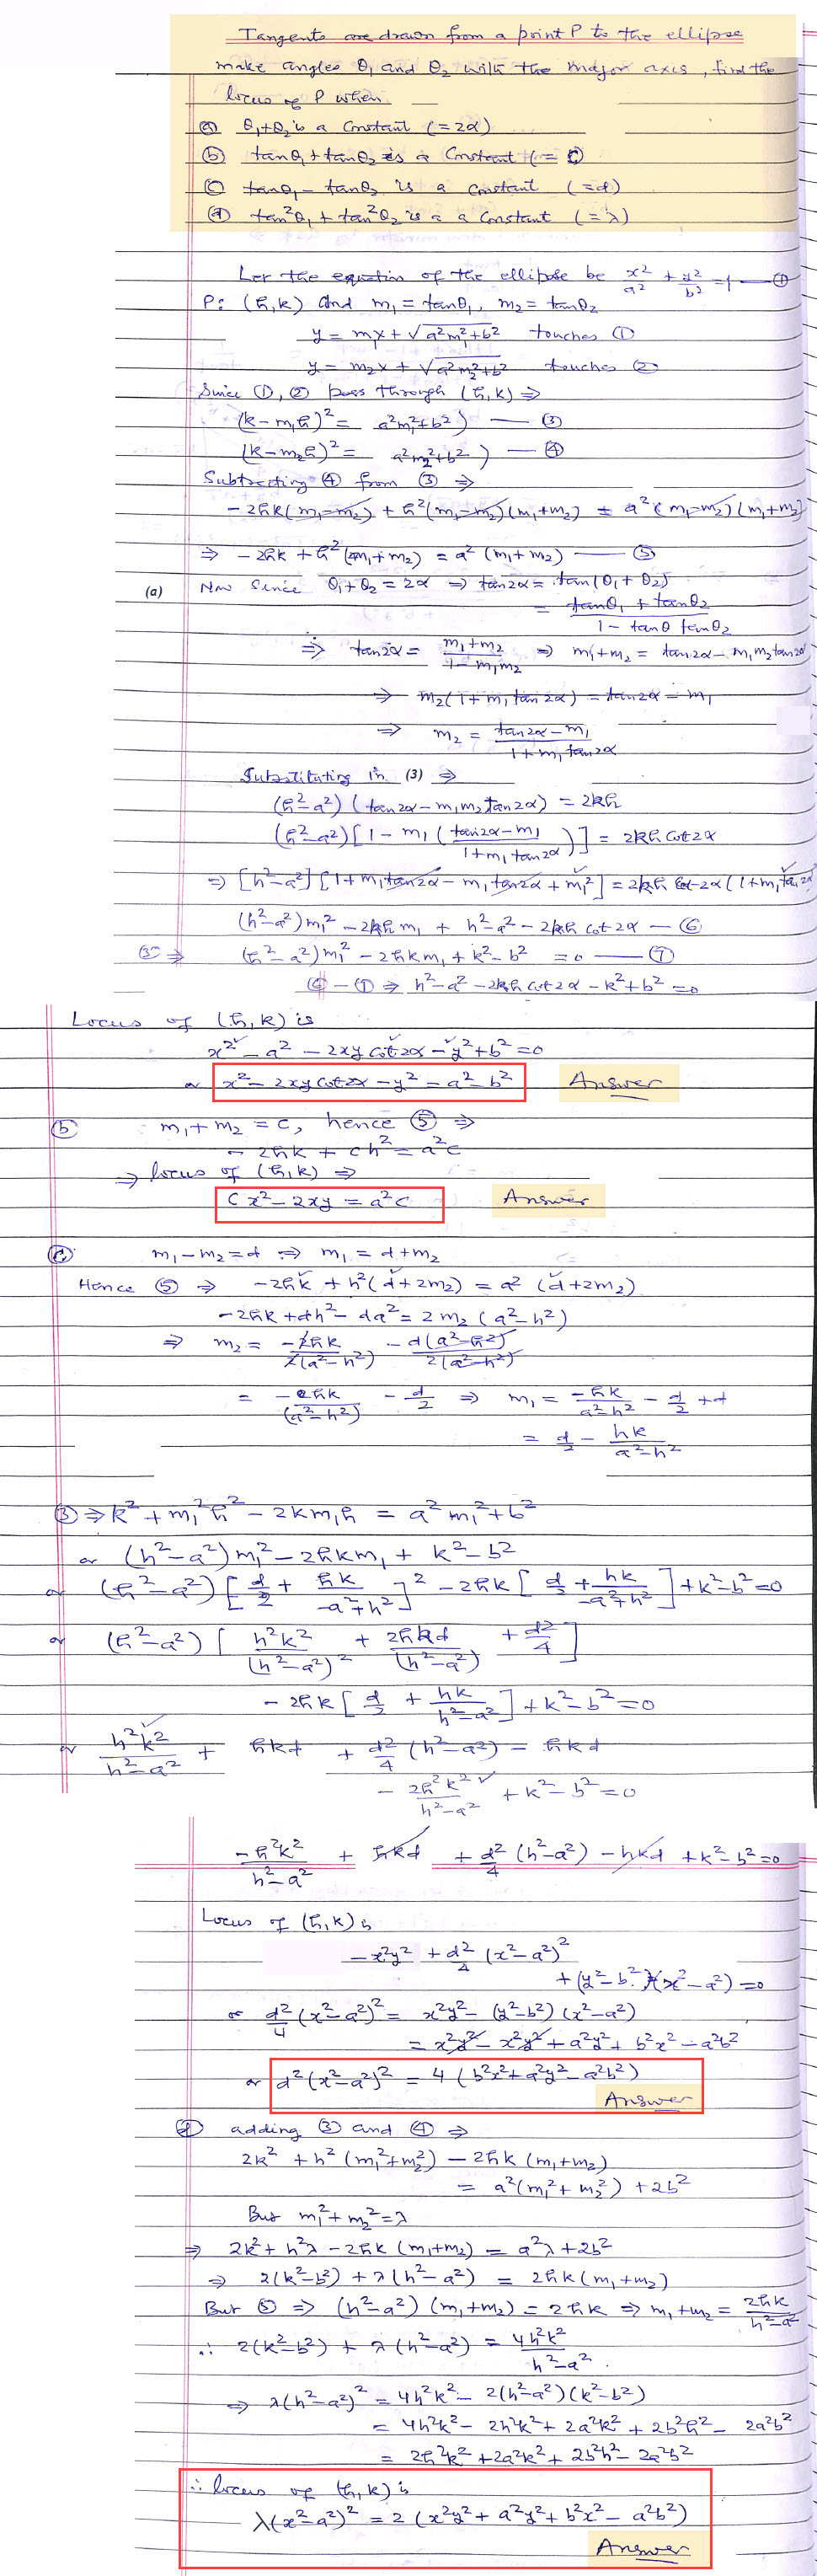 Tangents are drawn from a point P to the ellipse
make angles θ₁ and θ₂ with the major axis, find the
locus of P when
(a) θ₁+θ₂ is a constant (=2α)
(b) tanθ₁ + tanθ₂ is a constant (= C)
(c) tanθ₁ - tanθ₂ is a constant (=d)
(d) tan²θ₁ + tan²θ₂ is a a constant (=λ)
Let the equation of the ellipse be x²/a² + y²/b² = 1 — ①
P: (h,k) and m₁ = tanθ₁, m₂ = tanθ₂
y = m₁x + √a²m₁²+b² touches ①
y = m₂x + √a²m₂²+b² touches ②
Since ①, ② pass through (h,k) ⇒
(k-m₁h)² = a²m₁²+b²) — ③
(k-m₂h)² = a²m₂²+b²) — ④
Subtracting ④ from ③ ⇒
-2hk(m₁-m₂) + h²(m₁-m₂)(m₁+m₂) = a²(m₁-m₂)(m₁+m₂)
⇒ -2hk + h²(m₁+m₂) = a²(m₁+m₂) — ⑤
(a) Now since θ₁+θ₂ = 2α ⇒ tan2α = tan(θ₁+θ₂)
= tanθ₁ + tanθ₂ / 1 - tanθ tanθ₂
⇒ tan2α = m₁+m₂ / 1-m₁m₂ ⇒ m₁+m₂ = tan2α - m₁m₂tan2α
⇒ m₂(1+m₁tan2α) = tan2α - m₁
⇒ m₂ = tan2α-m₁ / 1+m₁tan2α
Substituting in (3) ⇒
(h²-a²)(tan2α - m₁m₂tan2α) = 2kh
(h²-a²)[1 - m₁(tan2α-m₁ / 1+m₁tan2α)] = 2kh cot2α
⇒ [h²-a²][1+m₁tan2α - m₁tan2α + m₁²] = 2kh cot2α(1+m₁tan2α
(h²-a²)m₁² - 2khm₁ + h²-a² - 2kh cot2α — ⑥
③ ⇒ (h²-a²)m₁² - 2hkm₁ + k²-b² = 0 — ⑦
⑥ - ⑦ ⇒ h²-a² - 2kh cot2α - k²+b² = 0
Locus of (h,k) is
x² - a² - 2xy cot2α - y² + b² = 0
or x² - 2xy cot2α - y² = a² - b² Answer
(b) m₁+m₂ = c, hence ⑤ ⇒
-2hk + ch² = a²c
⇒ locus of (h,k) ⇒
cx² - 2xy = a²c Answer
(c) m₁-m₂ = d ⇒ m₁ = d+m₂
Hence ⑤ ⇒ -2hk + h²(d+2m₂) = a²(d+2m₂)
-2hk + dh² - da² = 2m₂(a²-h²)
⇒ m₂ = -2hk / 2(a²-h²) - d(a²-h²) / 2(a²-h²)
= -hk / (a²-h²) - d/2 ⇒ m₁ = -hk / a²-h² - d/2 + d
= d/2 - hk / a²-h²
③ ⇒ k² + m₁²h² - 2km₁h = a²m₁²+b²
or (h²-a²)m₁² - 2hkm₁ + k²-b²
or (h²-a²)[d/2 + hk / -a²+h²]² - 2hk[d/2 + hk / -a²+h²] + k²-b² = 0
or (h²-a²)[h²k² / (h²-a²)² + 2hkd / (h²-a²) + d²/4]
- 2hk[d/2 + hk / h²-a²] + k²-b² = 0
or h²k² / h²-a² + hkd + d²/4 (h²-a²) - hkd
- 2h²k² / h²-a² + k²-b² = 0
-h²k² / h²-a² + hkd + d²/4 (h²-a²) - hkd + k²-b² = 0
Locus of (h,k) is
-x²y² + d²/4 (x²-a²)²
+ (y²-b²)(x²-a²) = 0
or d²/4 (x²-a²)² = x²y² - (y²-b²)(x²-a²)
= x²y² - x²y² + a²y² + b²x² - a²b²
or d²(x²-a²)² = 4(b²x²+a²y²-a²b²)
Answer
(d) adding ③ and ④ ⇒
2k² + h²(m₁²+m₂²) - 2hk(m₁+m₂)
= a²(m₁²+m₂²) + 2b²
But m₁²+m₂² = λ
⇒ 2k² + h²λ - 2hk(m₁+m₂) = a²λ+2b²
⇒ 2(k²-b²) + λ(h²-a²) = 2hk(m₁+m₂)
But ⑤ ⇒ (h²-a²)(m₁+m₂) = 2hk ⇒ m₁+m₂ = 2hk / h²-a²
∴ 2(k²-b²) + λ(h²-a²) = 4h²k² / h²-a²
⇒ λ(h²-a²)² = 4h²k² - 2(h²-a²)(k²-b²)
= 4h²k² - 2h²k² + 2a²k² + 2b²h² - 2a²b²
= 2h²k² + 2a²k² + 2b²h² - 2a²b²
∴ locus of (h,k) is
λ(x²-a²)² = 2(x²y² + a²y² + b²x² - a²b²)
Answer